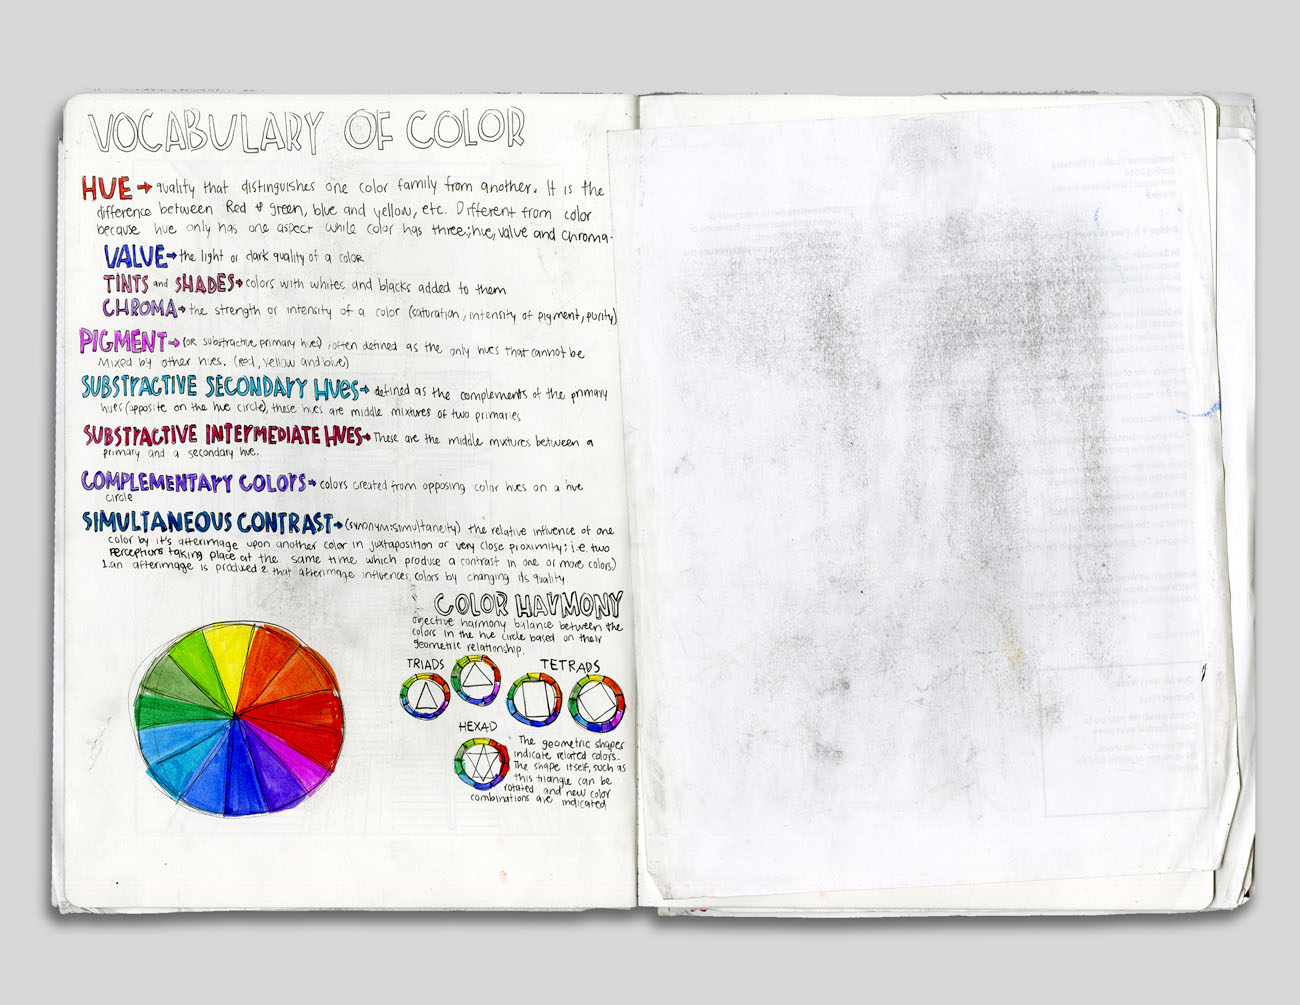 VOCABULARY OF COLOR
HUE → quality that distinguishes one color family from another. It is the
difference between Red & green, blue and yellow, etc. Different from color
because hue only has one aspect while color has three; hue, value and chroma.
VALUE → the light or dark quality of a color
TINTS and SHADES → colors with whites and blacks added to them
CHROMA → the strength or intensity of a color (saturation, intensity of pigment, purity)
PIGMENT → (or substractive primary hues) often defined as the only hues that cannot be
mixed by other hues. (red, yellow and blue)
SUBSTRACTIVE SECONDARY HUES → defined as the complements of the primary
hues (opposite on the hue circle), these hues are middle mixtures of two primaries
SUBSTRACTIVE INTERMEDIATE HUES → These are the middle mixtures between a
primary and a secondary hue.
COMPLEMENTARY COLORS → colors created from opposing color hues on a hue
circle
SIMULTANEOUS CONTRAST → (synonym: simultaneity) the relative influence of one
color by it's afterimage upon another color in juxtaposition or very close proximity; i.e. two
perceptions taking place at the same time which produce a contrast in one or more colors)
1. an afterimage is produced 2. that afterimage influences colors by changing its quality.
COLOR HARMONY
objective harmony balance between the
colors in the hue circle based on their
geometric relationship.
TRIADS
TETRADS
HEXAD
The geometric shapes
indicate related colors.
The shape itself, such as
this triangle can be
rotated and new color
combinations are indicated